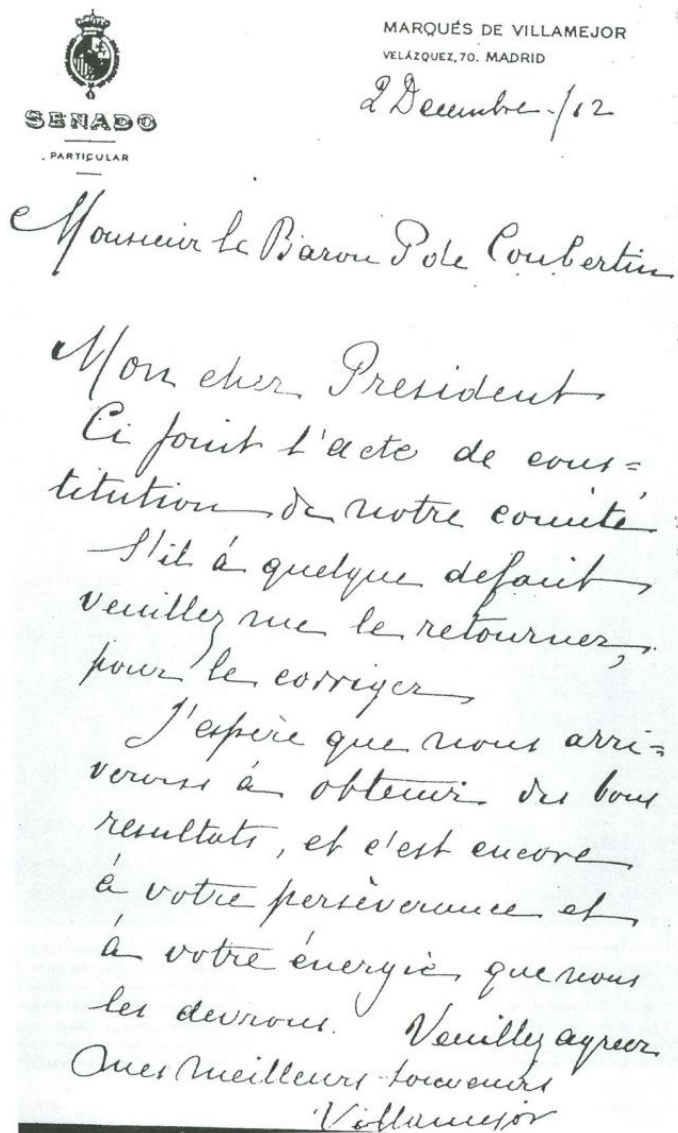 SENADO
PARTICULAR
MARQUÉS DE VILLAMEJOR
VELÁZQUEZ, 70. MADRID
2 Decembre /12
Monsieur le Baron P de Coubertin
Mon cher President
Ci joint l'acte de cons=
titution de notre comité
S'il à quelque defaut
veuillez me le retourner,
pour le corriger
J'espère que nous arri=
verons à obtenir des bons
resultats, et c'est encore
à votre persèverance et
à votre énergie que nous
les devrons. Veuillez agreer
mes meilleurs souvenirs
Villamejor